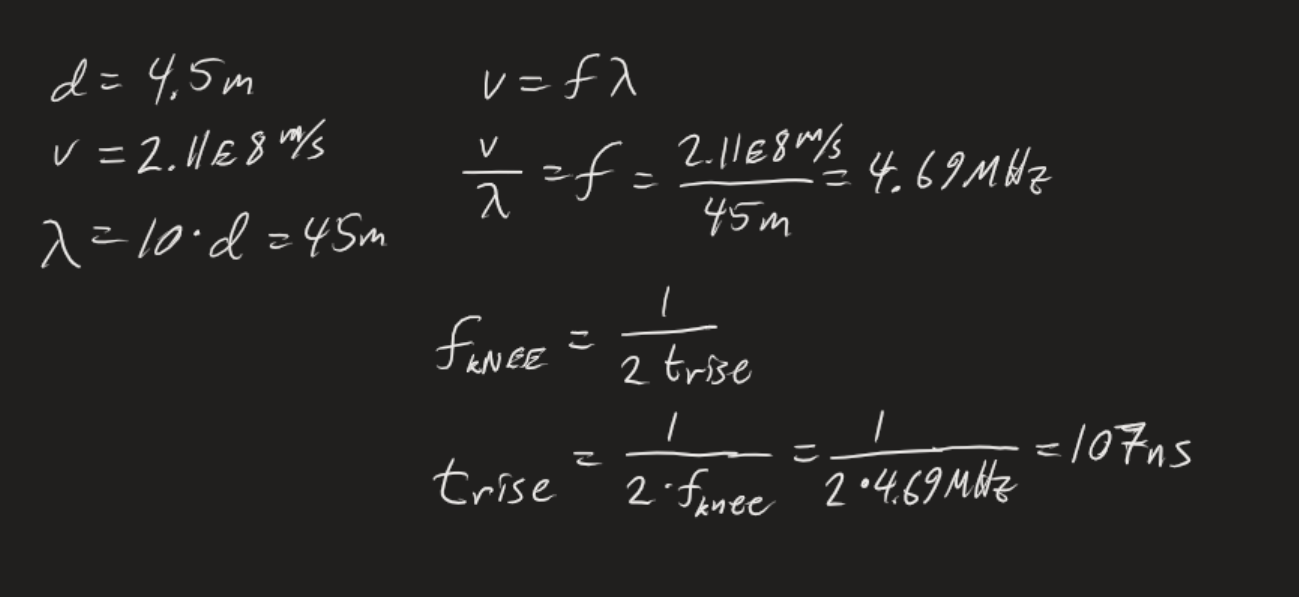 d = 4.5m
v = 2.11E8 m/s
λ = 10·d = 45m
v = fλ
v/λ = f = 2.11E8 m/s / 45m = 4.69MHz
fKNEE = 1 / 2 trise
trise = 1 / 2·fknee = 1 / 2•4.69MHz = 107ns